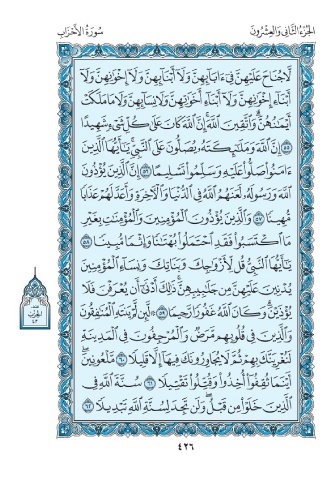 الجزء الثاني والعشرون
سورة الأحزاب
لَّا جُنَاحَ عَلَيْهِنَّ فِىٓ ءَابَآئِهِنَّ وَلَآ أَبْنَآئِهِنَّ وَلَآ إِخْوَٰنِهِنَّ وَلَآ
أَبْنَآءِ إِخْوَٰنِهِنَّ وَلَآ أَبْنَآءِ أَخَوَٰتِهِنَّ وَلَا نِسَآئِهِنَّ وَلَا مَا مَلَكَتْ
أَيْمَٰنُهُنَّ ۗ وَٱتَّقِينَ ٱللَّهَ ۚ إِنَّ ٱللَّهَ كَانَ عَلَىٰ كُلِّ شَىْءٍ شَهِيدًا
٥٥ إِنَّ ٱللَّهَ وَمَلَٰٓئِكَتَهُۥ يُصَلُّونَ عَلَى ٱلنَّبِىِّ ۚ يَٰٓأَيُّهَا ٱلَّذِينَ
ءَامَنُوا۟ صَلُّوا۟ عَلَيْهِ وَسَلِّمُوا۟ تَسْلِيمًا ٥٦ إِنَّ ٱلَّذِينَ يُؤْذُونَ
ٱللَّهَ وَرَسُولَهُۥ لَعَنَهُمُ ٱللَّهُ فِى ٱلدُّنْيَا وَٱلْءَاخِرَةِ وَأَعَدَّ لَهُمْ عَذَابًا
مُّهِينًا ٥٧ وَٱلَّذِينَ يُؤْذُونَ ٱلْمُؤْمِنِينَ وَٱلْمُؤْمِنَٰتِ بِغَيْرِ
مَا ٱكْتَسَبُوا۟ فَقَدِ ٱحْتَمَلُوا۟ بُهْتَٰنًا وَإِثْمًا مُّبِينًا ٥٨
يَٰٓأَيُّهَا ٱلنَّبِىُّ قُل لِّأَزْوَٰجِكَ وَبَنَاتِكَ وَنِسَآءِ ٱلْمُؤْمِنِينَ
يُدْنِينَ عَلَيْهِنَّ مِن جَلَٰبِيبِهِنَّ ۚ ذَٰلِكَ أَدْنَىٰٓ أَن يُعْرَفْنَ فَلَا
يُؤْذَيْنَ ۗ وَكَانَ ٱللَّهُ غَفُورًا رَّحِيمًا ٥٩ ۞ لَّئِن لَّمْ يَنتَهِ ٱلْمُنَٰفِقُونَ
وَٱلَّذِينَ فِى قُلُوبِهِم مَّرَضٌ وَٱلْمُرْجِفُونَ فِى ٱلْمَدِينَةِ
لَنُغْرِيَنَّكَ بِهِمْ ثُمَّ لَا يُجَاوِرُونَكَ فِيهَآ إِلَّا قَلِيلًا ٦٠ مَّلْعُونِينَ ۖ
أَيْنَمَا ثُقِفُوٓا۟ أُخِذُوا۟ وَقُتِّلُوا۟ تَقْتِيلًا ٦١ سُنَّةَ ٱللَّهِ فِى
ٱلَّذِينَ خَلَوْا۟ مِن قَبْلُ ۖ وَلَن تَجِدَ لِسُنَّةِ ٱللَّهِ تَبْدِيلًا ٦٢
الحزب
٤٣
٤٢٦